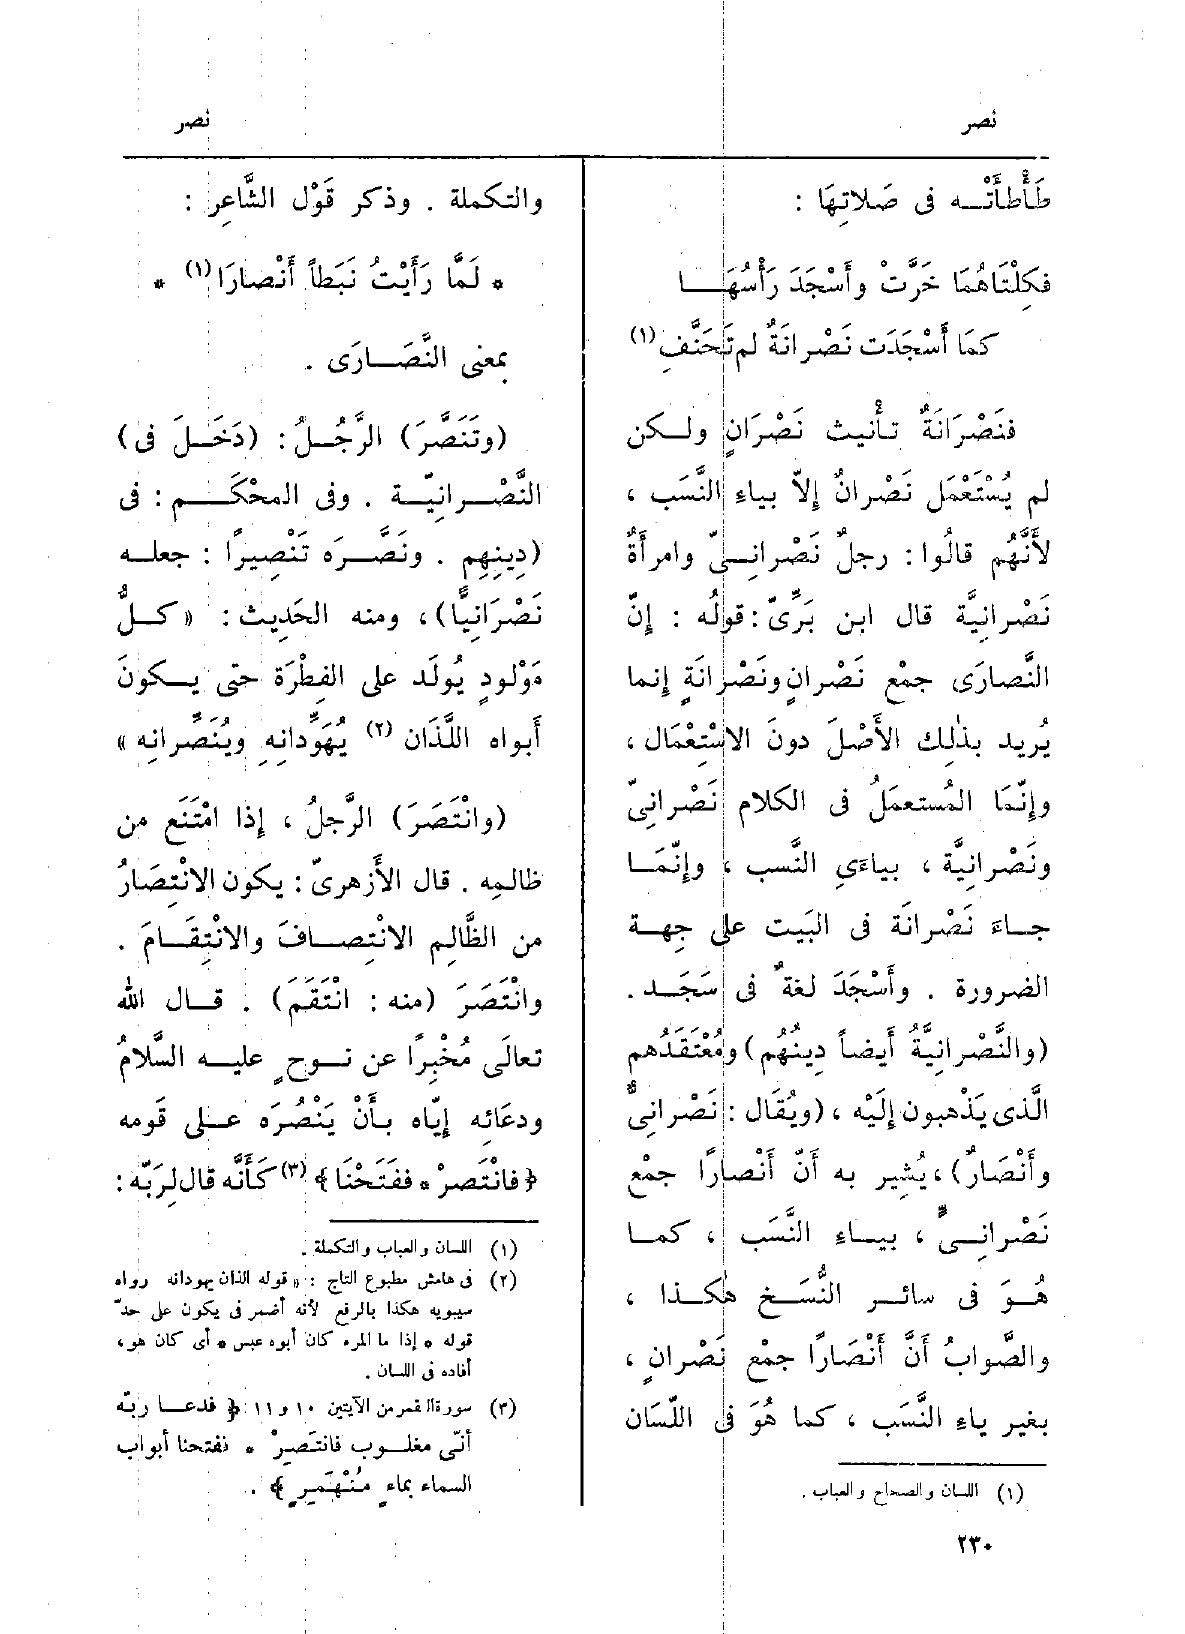 نصر
نصر
طَأْطأَتْــه فى صَلاتِهَا :
فكِلْتَاهُمَا خَرَّتْ وأَسْجَدَ رَأْسُهَــا
كمَا أَسْجَدَت نَصْرانَةٌ لم تَحَنَّفِ (١)
فنَصْرَانَةٌ تأْنيث نَصْرَانٍ ولـكن
لم يُسْتَعْمَل نَصْرانٌ إلاّ بياءِ النَّسَب ،
لأَنَّهُم قالُوا : رجلٌ نَصْرانِــىّ وامرأَةٌ
نَصْرانِيَّة قال ابن بَرِّىّ : قولُه : إِنّ
النَّصارَى جمْع نَصْرانٍ ونَصْرانَةٍ إِنما
يُريد بذٰلك الأَصْلَ دونَ الاسْتِعْمَال ،
وإِنَّمَا المُستعمَلُ فى الكلام نَصْرانِىّ
ونَصْرانِيَّة ، بياءَىِ النَّسب ، وإِنَّمَــا
جــاءَ نَصْرانَة فى البَيت على جِهــة
الضرورة . وأَسْجَدَ لغةٌ فى سَجَــد .
(والنَّصْرانِيَّةُ أَيضاً دِينُهُم) ومُعْتَقدُهم
الَّذى يَذْهبون إِلَيْه ، (ويُقَال : نَصْرانِىٌّ
وأَنْصَارٌ) ، يُشِير به أَنّ أَنْصارًا جمْع
نَصْرانِــىٍّ ، بيــاءِ النَّسَب ، كمــا
هُــوَ فى سائــر النُّسَــخ هٰكــذا ،
والصَّوابُ أَنَّ أَنْصَارًا جمْع نَصْرانٍ ،
بغير ياءِ النَّسَب ، كما هُوَ فى اللّسَان
(١) اللسان والصحاح والعباب .
٢٣٠
والتكملة . وذكر قَوْل الشَّاعِر :
* لَمَّا رَأَيْتُ نَبَطاً أَنْصارَا (١) *
بمعنى النَّصَــارَى .
(وتَنَصَّرَ) الرَّجُــلُ : (دَخَــلَ فى)
النَّصْــرانِيّــة . وفى المحْكَــم : فى
(دِينِهِم . ونَصَّــرَه تَنْصِيرًا : جعلــه
نَصْرَانِيًّا) ، ومنه الحَدِيث : « كــلُّ
مَوْلودٍ يُولَد على الفِطْرَة حتى يــكونَ
أَبواه اللَّذَان (٢) يُهَوِّدانِهِ ويُنَصِّرانِه »
(وانْتَصَرَ) الرَّجلُ ، إِذا امْتَنَع من
ظالِمِه . قال الأَزهرىّ : يكون الانْتِصَارُ
من الظَّالِم الانْتِصــافَ والانْتِقَــامَ .
وانْتَصَرَ (منه : انْتَقَمَ) . قــال الله
تعالَى مُخْبِرًا عن نــوحٍ عليــه السَّلامُ
ودعَائِه إِيّاه بــأَنْ يَنْصُرَه علــى قَومه
﴿فانْتَصِرْ * ففَتَحْنَا﴾ (٣) كَأَنَّه قال لِرَبّه :
(١) اللسان والعباب والتكملة .
(٢) فى هامش مطبوع التاج : « قوله اللذان يهودانه رواه
سيبويه هكذا بالرفع لأنه أضمر فى يكون على حدّ
قوله * إذا ما المرء كان أبوه عبس * أى كان هو ،
أفاده فى اللسان .
(٣) سورة القمر من الآيتين ١٠ و ١١ : ﴿ فدعــا ربّه
أنّى مغلــوب فانتَصِرْ * ففتحنا أبواب
السماء بماءٍ مُنْهَمِرٍ ﴾ .